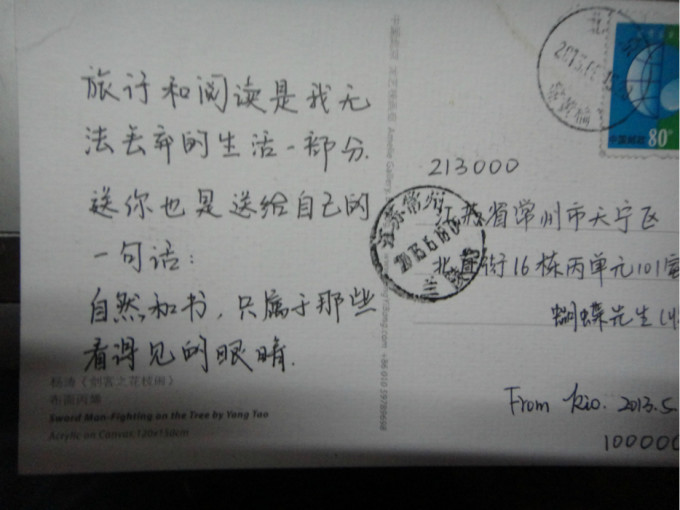 旅行和阅读是我无
法丢弃的生活一部分.
送你也是送给自己的
一句话:
自然和书,只属于那些
看得见的眼睛.
杨涛《剑客之花枝俏》
布面丙烯
Sword Man-Fighting on the Tree by Yang Tao
Acrylic on Canvas 120x150cm
中国邮政
80
213000
江苏省常州市天宁区
北直街16栋丙单元101室
蝴蝶先生
From kio. 2013.5
100000
江苏常州